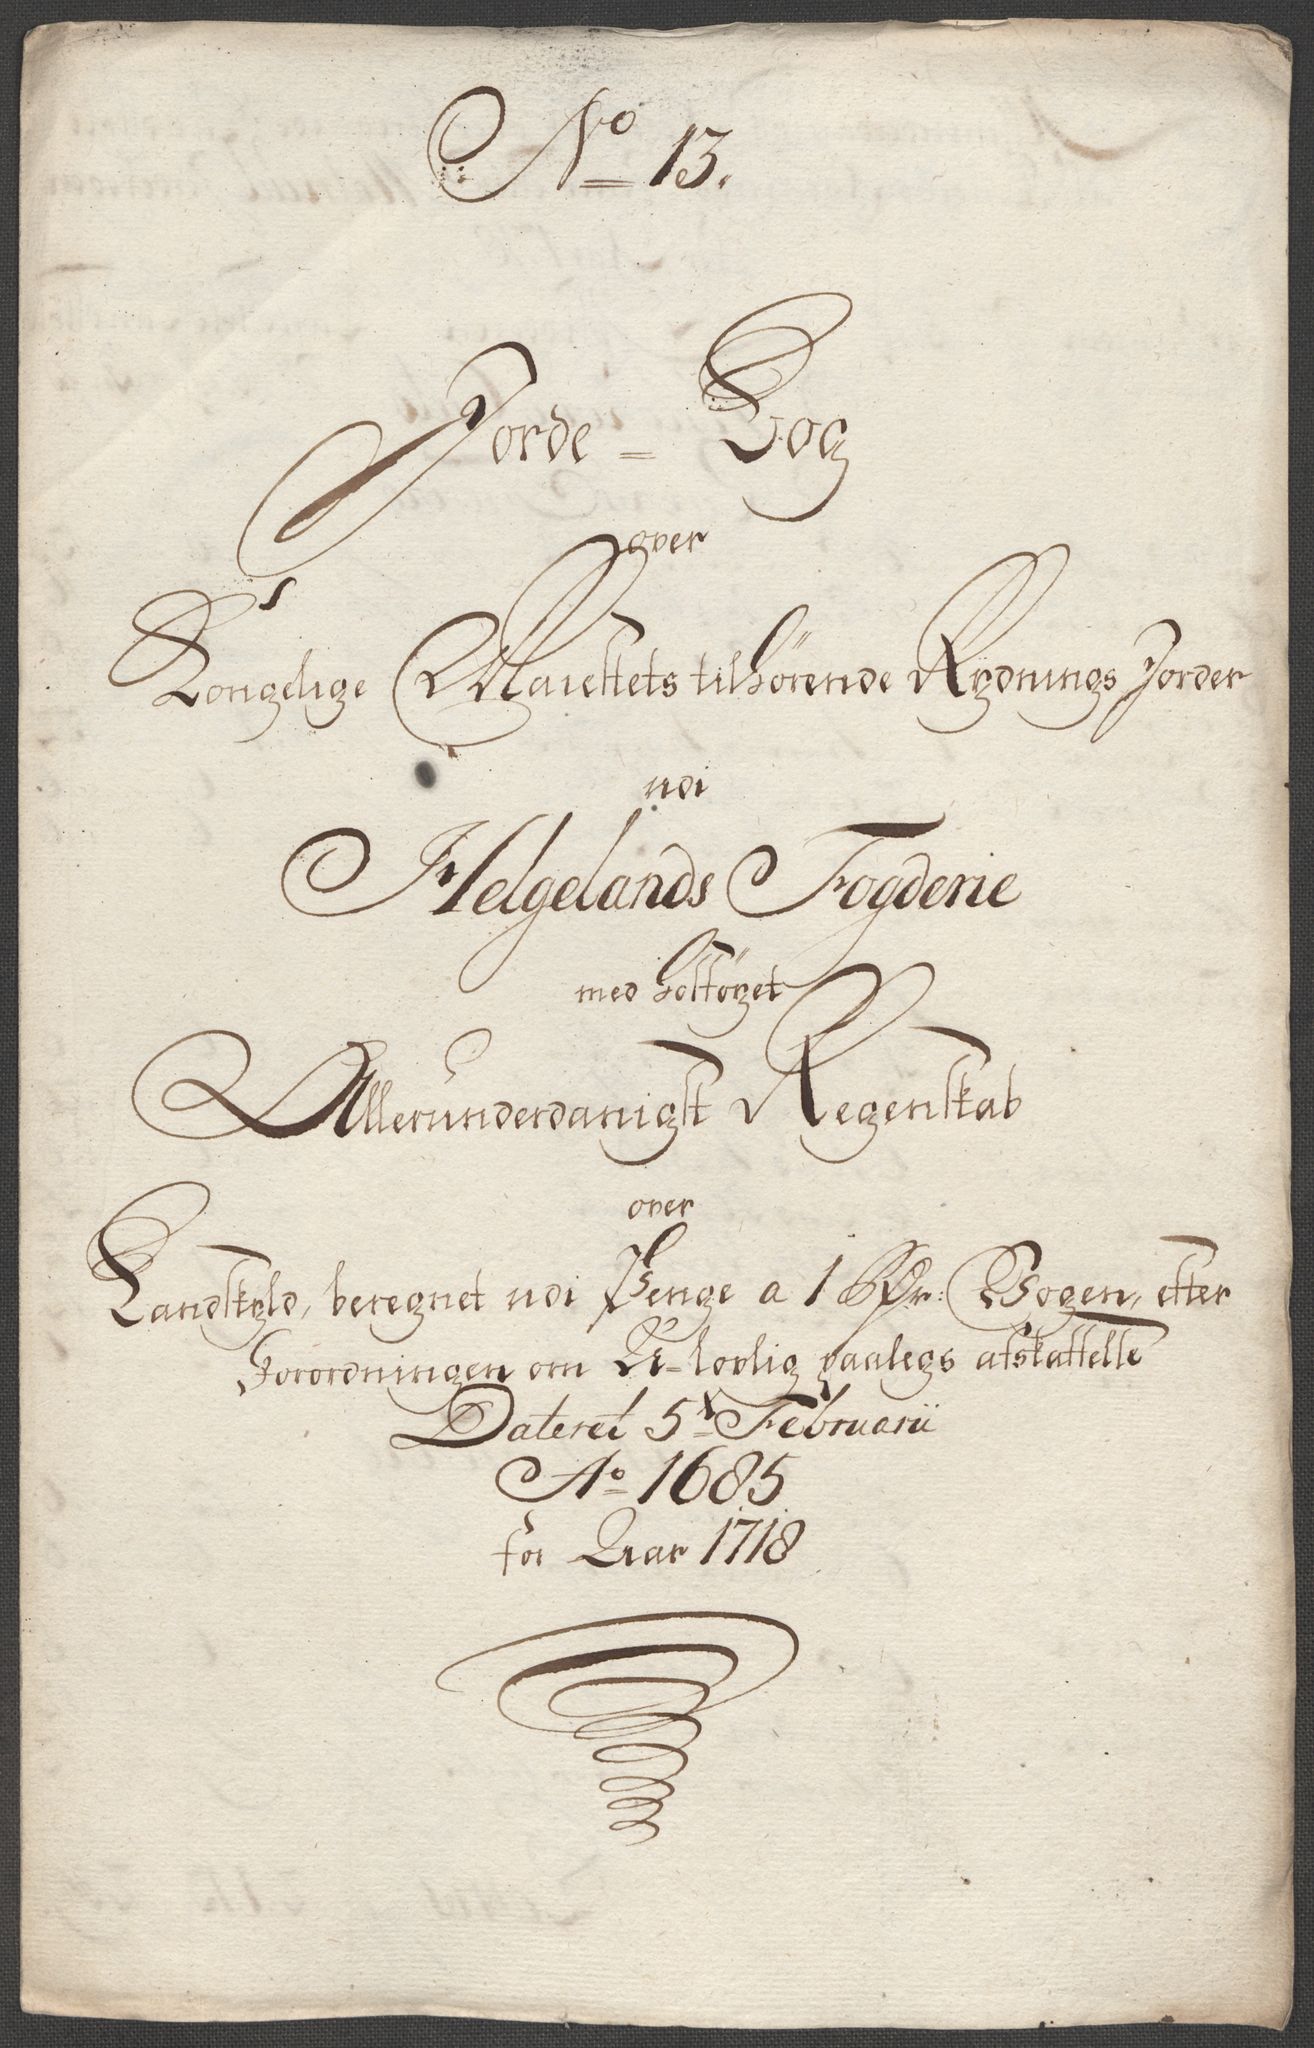 No 13.
Jorde-Bog
over
Kongelige Maiestets tilhörende Rydnings Jorder
udi
Helgelands Fogderie
med hosföyet
Allerunderdanigst Regenskab
over
Landskyld, beregnet udi Penge a 1 Bogen, efter
Forordningen om U-lovlig paalegs afskaffelse
Dateret 5t Februarii
Ao 1685
for Aar 1718